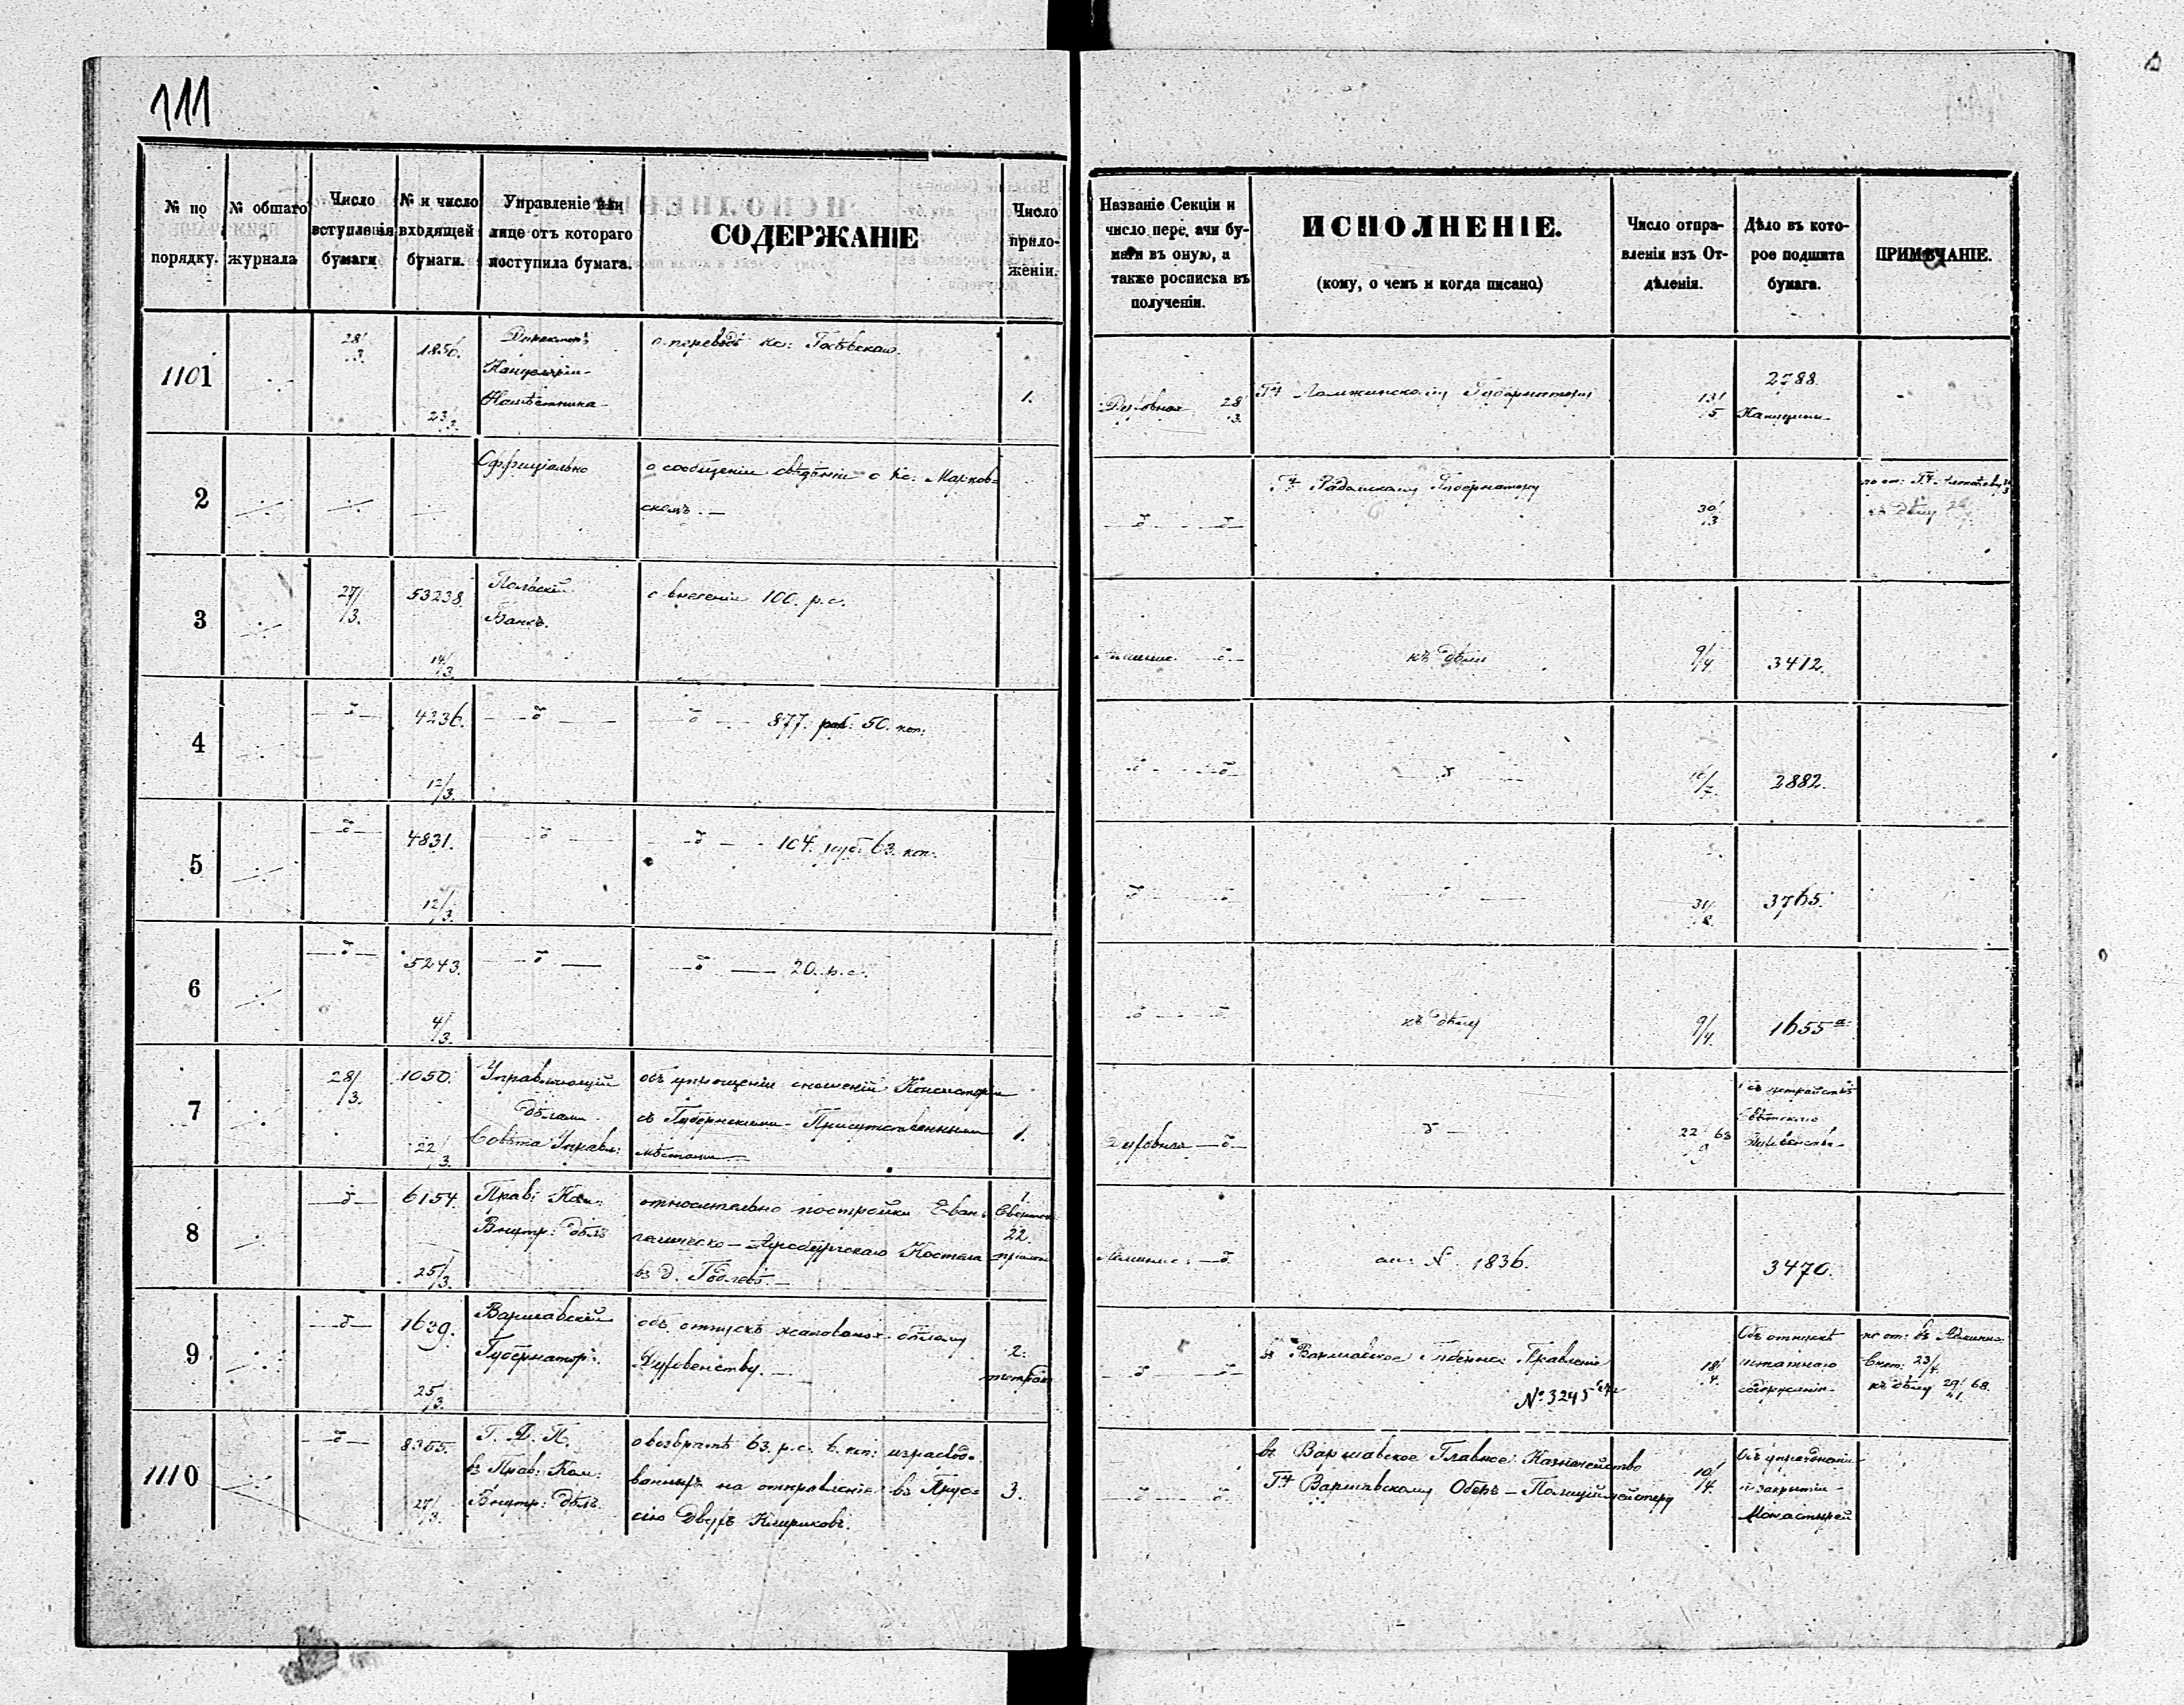 111
№ по порядку.
№ общаго журнала
Число вступленія бумаги
№ и число входящей бумаги.
Управленіе или лице отъ котораго поступила бумага.
СОДЕРЖАНІЕ
Число приложеніи.
Названіе Секціи и число передачи бумаги въ оную, а также росписка въ полученіи.
ИСПОЛНЕНІЕ.
(кому, о чемъ и когда писано)
Число отправленія изъ Отдѣленія.
Дѣло въ которое подшита бумага.
ПРИМѢЧАНІЕ.
1101
28/3
1850.
23/3.
Директоръ
Канцеляріи
Намѣстника
о переводѣ кс:
1.
Духовная 28/3
Гну Ломжинскому Губернатору
13/5
2788.
2
Оффиціально
о сообщеніи свѣдѣніи о Кс: Марков-
скомъ. —
Гну Радомскому Губернатору
30/3
3
27/3.
53238.
14/3.
Польскій
Банкъ.
о внесеніи 100. р.с.
къ дѣлу
9/4
3412.
4
4236.
12/3.
877. руб: 50. коп.
2882.
5
4831.
12/3.
104. руб. 63. коп.
31/8.
3765.
6
5243.
4/3.
20. р.с.
къ дѣлу
9/4.
1655 а.
7
28/3.
1050.
22/3.
Управляющій
дѣлами
Совѣта Управл:
объ упрощеніи сношеній Консисторіи
съ Губернскими Присутственными
мѣстами
1.
Духовная
22/9 68
8
6154.
25/3.
Прав: Ком:
Внутр: дѣлъ
относительно постройки Еван-
гелическо — Аугсбургскаго Костела
въ д.
1.
22.
№ 1836.
3470.
9
1639.
25/3.
Варшавскій
Губернаторъ.
объ отпускѣ жалованья бѣлому
Духовенству. —
2.
въ Варшавское Губернс: Правленіе
№ 3245
18/4.
Объ отпускѣ
штатнаго
содержанія.
23/4.
къ дѣлу 29/11 68.
1110
8365.
27/3.
Г. Д. П.
въ Прав: Ком:
Внутр: дѣлъ.
о возвратѣ 63. р.с. 6. коп: израсходо-
ванныхъ на отправленіе въ Прус-
сію двухъ Клириковъ.
3.
въ Варшавское Главное Казначейство
Гну Варшавскому Оберъ — Полиціймейстеру
10/4.
Объ упраздненіи
и закрытіи
Монастырей